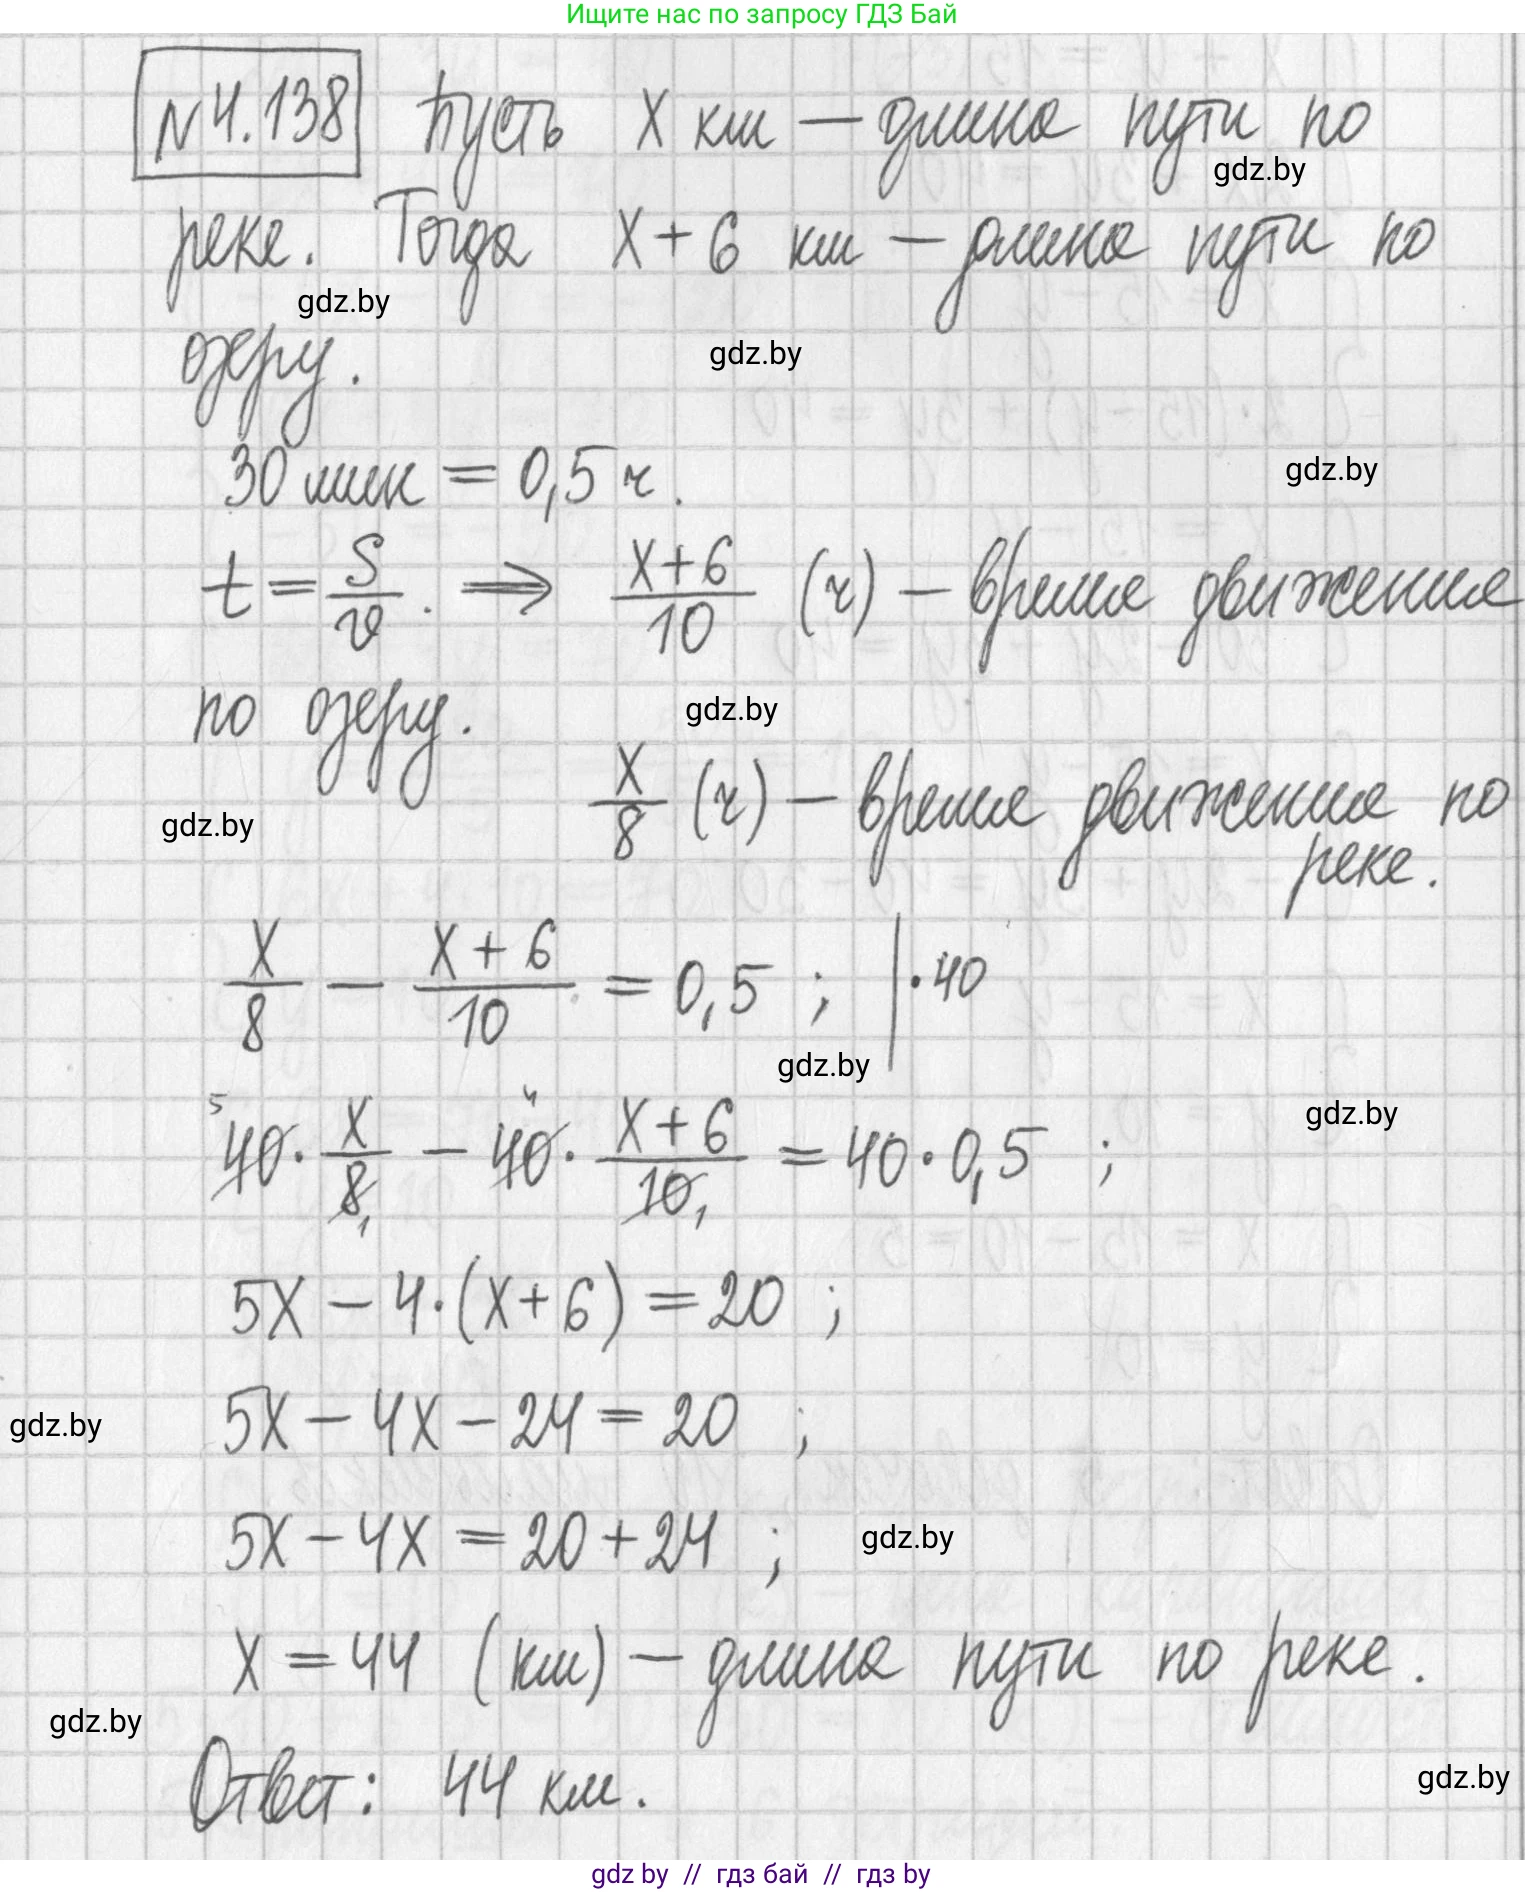 Ищите нас по запросу ГДЗ Бай
N 4.138 Пусть x км — длина пути по
gdz.by
реке. Тогда x + 6 км — длина пути по
gdz.by
озеру.
gdz.by
30 мин = 0,5 ч.
gdz.by
t = S/v. ⇒ (x+6)/10 (ч) — время движения
по озеру.
gdz.by
x/8 (ч) — время движения по
реке.
gdz.by
x/8 − (x+6)/10 = 0,5 ; | · 40
gdz.by
gdz.by
5 40 · x/8 1 − 4 40 · (x+6)/10 1 = 40 · 0,5 ;
5x − 4 · (x+6) = 20 ;
5x − 4x − 24 = 20 ;
gdz.by
5x − 4x = 20 + 24 ;
gdz.by
x = 44 (км) — длина пути по реке.
gdz.by
Ответ: 44 км.
gdz.by
gdz by // гдз бай // gdz by